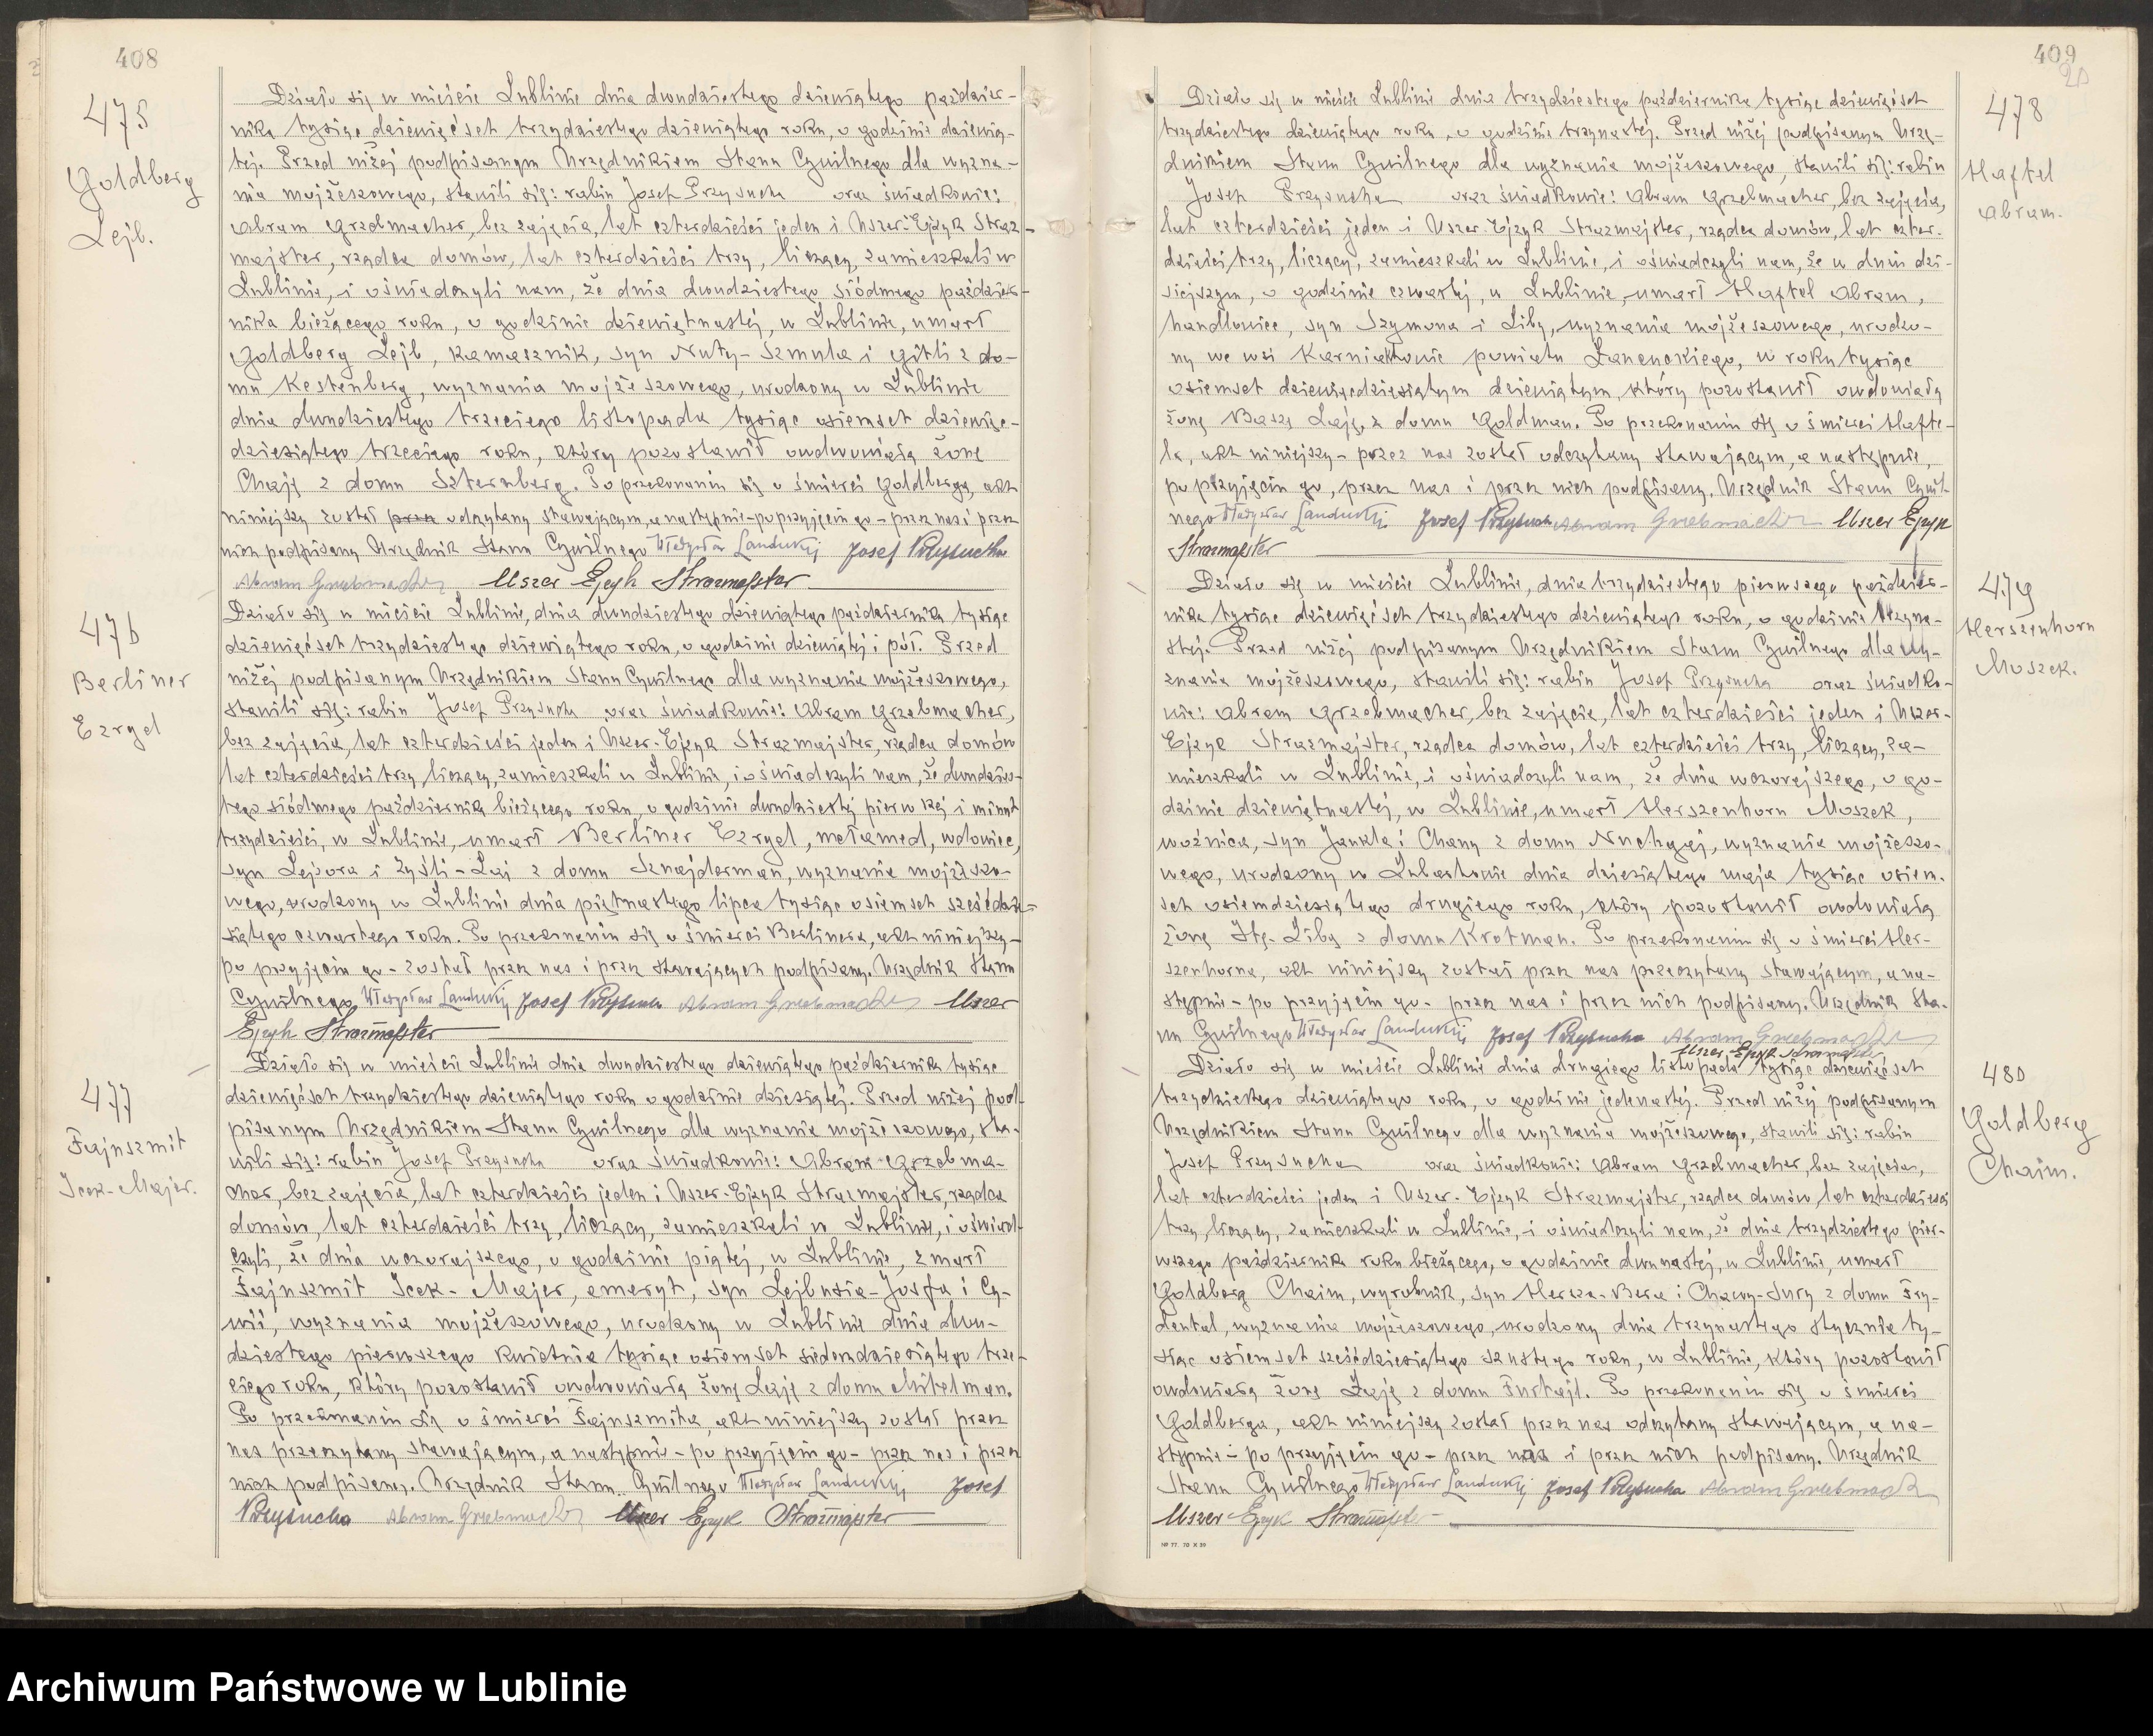 408
475
Goldberg
Lejb.
Działo się w mieście Lublinie dnia dwudziestego dziewiątego paździer-
nika tysiąc dziewięćset trzydziestego dziewiątego roku, o godzinie dziewią-
tej. Przed niżej podpisanym Urzędnikiem Stanu Cywilnego dla wyzna-
nia mojżeszowego, stawili się: rabin Josef Przysucha oraz świadkowie:
Abram Grzebmacher, bez zajęcia, lat czterdzieści jeden i Uszer-Ejzyk Straz-
majster, rządca domów, lat czterdzieści trzy, liczący, zamieszkali w
Lublinie, i oświadczyli nam, że dnia dwudziestego siódmego paździer-
nika bieżącego roku, o godzinie dziewiętnastej, w Lublinie, umarł
Goldberg Lejb, kamasznik, syn Nuty-Szmula i Gitli z do-
mu Kestenberg, wyznania mojżeszowego, urodzony w Lublinie
dnia dwudziestego trzeciego listopada tysiąc osiemset dziewięć-
dziesiątego trzeciego roku, który pozostawił owdowiałą żonę
Chaję z domu Szternberg. Po przekonaniu się o śmierci Goldberga, akt
niniejszy został przez odczytany stawającym, a następnie-po przyjęciu go-przez nas i przez
nich podpisany Urzędnik Stanu Cywilnego Władysław Josef Przysucha
Abram Grzebmacher Uszer Ejzyk Strazmajster
476
Berliner
Ezryel
Działo się w mieście Lublinie, dnia dwudziestego dziewiątego października tysiąc
dziewięćset trzydziestego dziewiątego roku, o godzinie dziewiątej i pół. Przed
niżej podpisanym Urzędnikiem Stanu Cywilnego dla wyznania mojżeszowego,
stawili się: rabin Josef Przysucha oraz świadkowie: Abram Grzebmacher,
bez zajęcia, lat czterdzieści jeden i Uszer-Ejzyk Strazmajster, rządca domów
lat czterdzieści trzy, liczący, zamieszkali w Lublinie, i oświadczyli nam, że dwudzies-
tego siódmego października bieżącego roku, o godzinie dwudziestej pierwszej i minut
trzydzieści, w Lublinie, umarł Berliner Ezryel, mełamed, wdowiec,
syn Lejzora i Zysli-Łai z domu Sznajderman, wyznania mojżeszo-
wego, urodzony w Lublinie dnia piętnastego lipca tysiąc osiemset sześćdzie-
siątego czwartego roku. Po przekonaniu się o śmierci Berlinera, akt niniejszy-
po przyjęciu go-został przez nas i przez stawających podpisany. Urzędnik Stanu
Cywilnego Władysław Josef Przysucha Abram Grzebmacher Uszer
Ejzyk Strazmajster
477
Fajnszmit
Icek-Majer.
Działo się w mieście Lublinie dnia dwudziestego dziewiątego października tysiąc
dziewięćset trzydziestego dziewiątego roku o godzinie dziesiątej. Przed niżej pod-
pisanym Urzędnikiem Stanu Cywilnego dla wyznania mojżeszowego, sta-
wili się: rabin Josef Przysucha oraz świadkowie: Abram Grzebma-
cher, bez zajęcia, lat czterdzieści jeden i Uszer-Ejzyk Strazmajster, rządca
domów, lat czterdzieści trzy, liczący, zamieszkali w Lublinie, i oświad-
czyli, że dnia wczorajszego, o godzinie piątej, w Lublinie, zmarł
Fajnszmit Icek-Majer, emeryt, syn Lejbusia-Josfa i Cy-
wii, wyznania mojżeszowego, urodzony w Lublinie dnia dwu-
dziestego pierwszego kwietnia tysiąc osiemset siedemdziesiątego trze-
ciego roku, który pozostawił owdowiałą żonę Łaję z domu Mitelman.
Po przekonaniu się o śmierci Fajnszmita, akt niniejszy został przez
nas przeczytany stawającym, a następnie-po przyjęciu go-przez nas i przez
nich podpisany. Urzędnik Stanu Cywilnego Władysław Josef
Przysucha Abram Grzebmacher Uszer Ejzyk Strazmajster
409
20
478
Haftel
Abram.
Działo się w mieście Lublinie dnia trzydziestego października tysiąc dziewięćset
trzydziestego dziewiątego roku, o godzinie trzynastej. Przed niżej podpisanym Urzę-
dnikiem Stanu Cywilnego dla wyznania mojżeszowego, stawili się: rabin
Josef Przysucha oraz świadkowie: Abram Grzebmacher, bez zajęcia,
lat czterdzieści jeden i Uszer-Ejzyk Strazmajster, rządca domów, lat czter-
dzieści trzy, liczący, zamieszkali w Lublinie, i oświadczyli nam, że w dniu dzi-
siejszym, o godzinie czwartej, w Lublinie, umarł Haftel Abram,
handlowiec, syn Szymona i Liby, wyznania mojżeszowego, urodzo-
ny we wsi powiatu w roku tysiąc
osiemset dziewięćdziesiątym dziewiątym, który pozostawił owdowiałą
żonę Baszę Łaję, z domu Goldman. Po przekonaniu się o śmierci Hafte-
la, akt niniejszy-przez nas został odczytany stawającym, a następnie,
po przyjęciu go, przez nas i przez nich podpisany. Urzędnik Stanu Cywil-
nego Władysław Josef Przysucha Abram Grzebmacher Uszer Ejzyk
Strazmajster
479
Herszenhorn
Moszek.
Działo się w mieście Lublinie, dnia trzydziestego pierwszego paździer-
nika tysiąc dziewięćset trzydziestego dziewiątego roku, o godzinie trzyna-
stej. Przed niżej podpisanym Urzędnikiem Stanu Cywilnego dla wy-
znania mojżeszowego, stawili się: rabin Josef Przysucha oraz świadko-
wie: Abram Grzebmacher, bez zajęcia, lat czterdzieści jeden i Uszer-
Ejzyk Strazmajster, rządca domów, lat czterdzieści trzy, liczący, za-
mieszkali w Lublinie, i oświadczyli nam, że dnia wczorajszego, o go-
dzinie dziewiętnastej, w Lublinie, umarł Herszenhorn Moszek,
woźnica, syn Jankla i Chany z domu wyznania mojżeszo-
wego, urodzony w Lubartowie dnia dziesiątego maja tysiąc osiem-
set osiemdziesiątego drugiego roku, który pozostawił owdowiałą
żonę Itę-Libę z domu Krotman. Po przekonaniu się o śmierci Her-
szenhorna, akt niniejszy został przez nas przeczytany stawającym, a na-
stępnie-po przyjęciu go-przez nas i przez nich podpisany. Urzędnik Sta-
nu Cywilnego Władysław Josef Przysucha Abram Grzebmacher
Uszer Ejzyk Strazmajster
480
Goldberg
Chaim.
Działo się w mieście Lublinie dnia drugiego listopada tysiąc dziewięćset
trzydziestego dziewiątego roku, o godzinie jedenastej. Przed niżej podpisanym
Urzędnikiem Stanu Cywilnego dla wyznania mojżeszowego, stawili się: rabin
Josef Przysucha oraz świadkowie: Abram Grzebmacher, bez zajęcia,
lat czterdzieści jeden i Uszer-Ejzyk Strazmajster, rządca domów, lat czterdzieści
trzy, liczący, zamieszkali w Lublinie, i oświadczyli nam, że dnia trzydziestego pier-
wszego października roku bieżącego, o godzinie dwunastej, w Lublinie, umarł
Goldberg Chaim, wyrobnik, syn Hersza-Bera i Chawy-Sury z domu Fry-
dental, wyznania mojżeszowego, urodzony dnia trzynastego stycznia ty-
siąc osiemset sześćdziesiątego szóstego roku, w Lublinie, który pozostawił
owdowiałą żonę Łaję z domu Furtajl. Po przekonaniu się o śmierci
Goldberga, akt niniejszy został przez nas odczytany stawającym, a na-
stępnie-po przyjęciu go-przez nas i przez nich podpisany. Urzędnik
Stanu Cywilnego Władysław Josef Przysucha Abram Grzebmacher
Uszer Ejzyk Strazmajster
№ 77. 70 X 39
Archiwum Państwowe w Lublinie